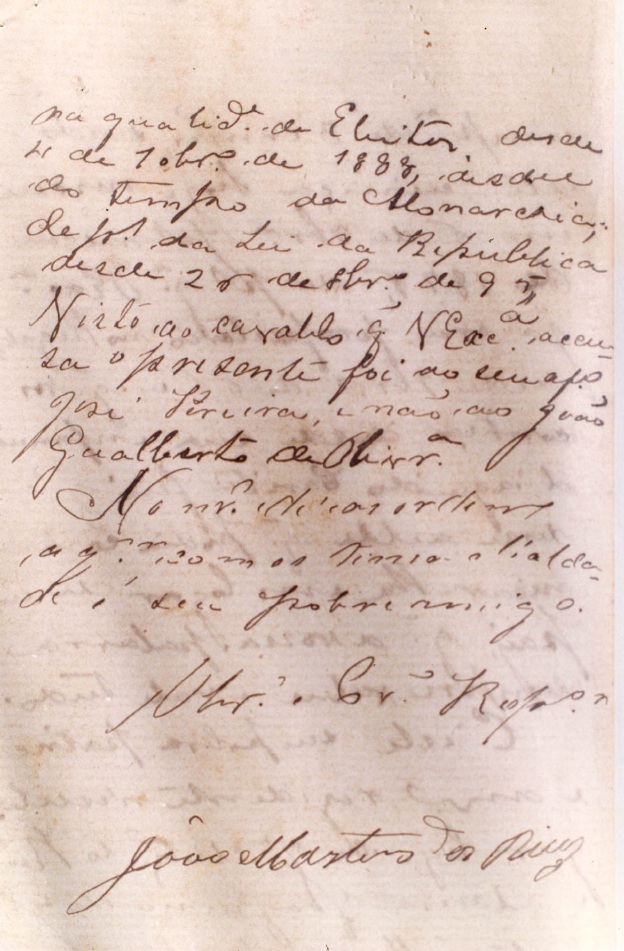 na qualid.e de Eleitor desde
4 de 7obr.º de 1888, desde
do tempo da Monarchia;
de p.s da Lei da Republica
desde 28 de 8br.º de 95,
Nisto ao cavallo q̃ V Exc.ª accu-
sa o presente foi ao seu
José Pereira, e não ao João
Gualberto de Olivr.ª
No
com os
de é seu pobre amigo.
Obr.º Cr.º
João Martins dos Reis